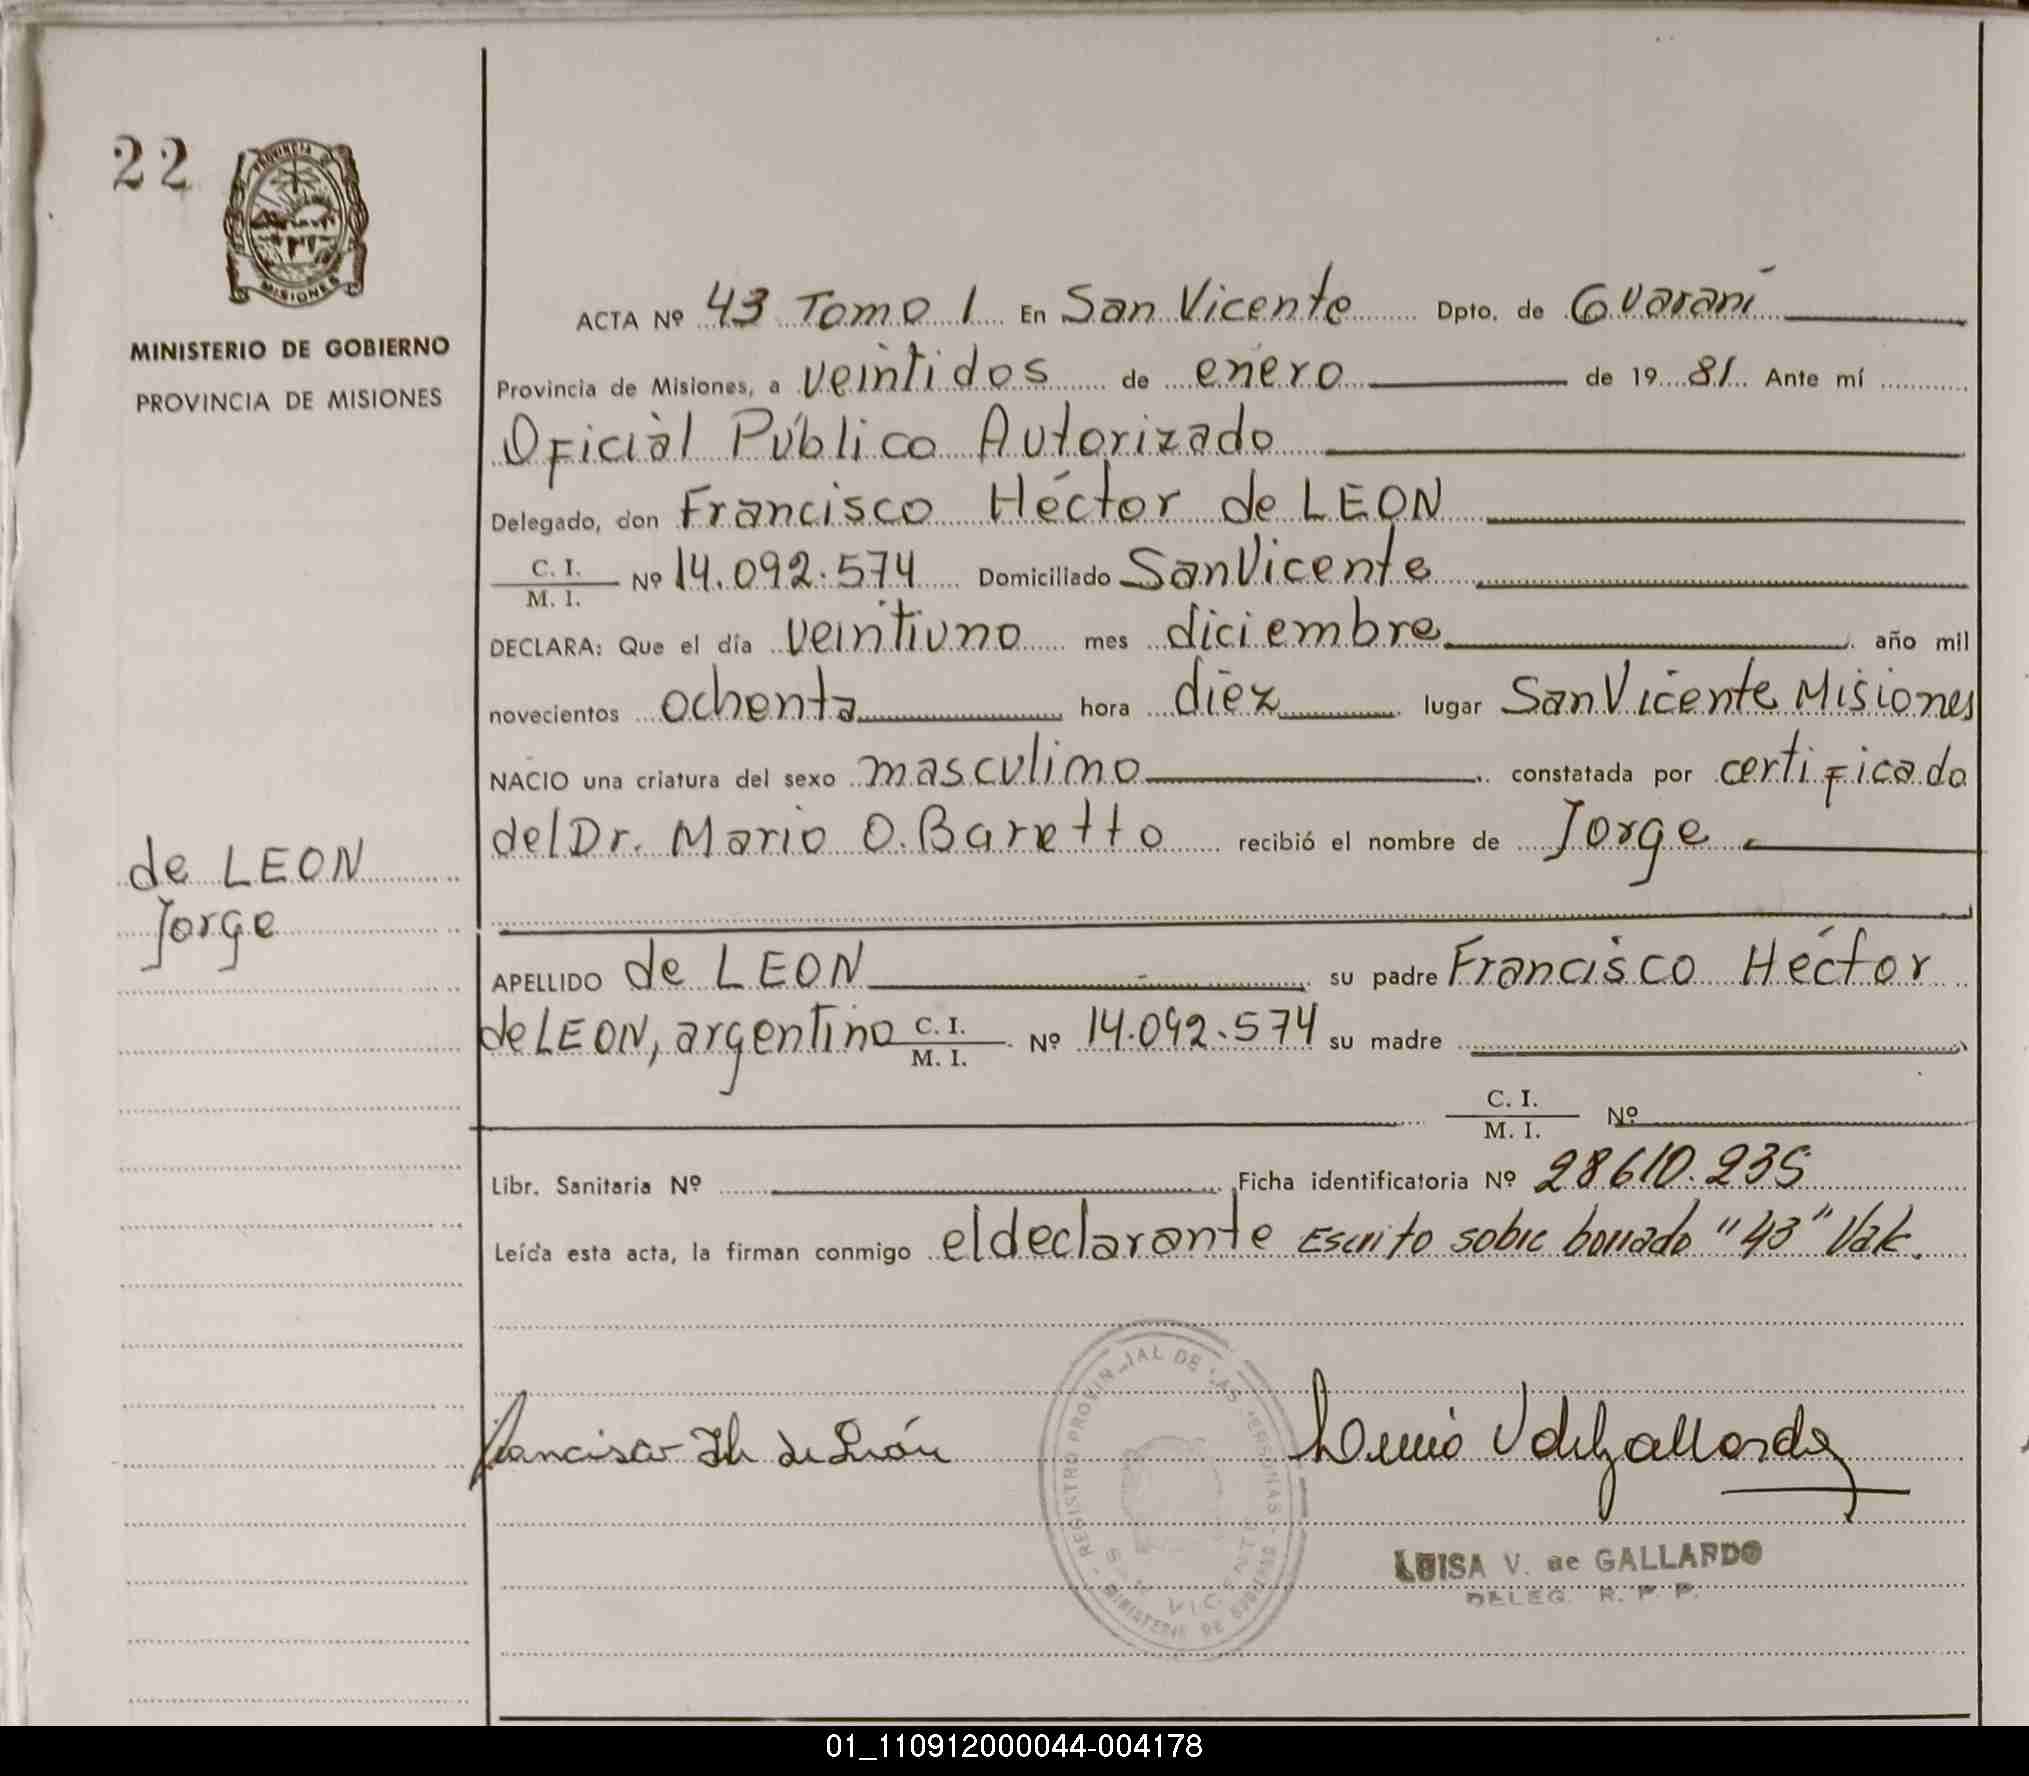 22
PROVINCIA DE
MISIONES
MINISTERIO DE GOBIERNO
PROVINCIA DE MISIONES
de LEON
Jorge
ACTA Nº 43 Tomo I En San Vicente Dpto. de Guaraní
Provincia de Misiones, a veintidos de enero de 19 81 Ante mí
Oficial Público Autorizado
Delegado, don Francisco Héctor de LEON
C. I.
M. I. Nº 14.092.574 Domiciliado San Vicente
DECLARA: Que el día veintiuno mes diciembre año mil
novecientos ochenta hora diez lugar San Vicente Misiones
NACIO una criatura del sexo masculino constatada por certificado
del Dr. Mario O. Baretto recibió el nombre de Jorge
APELLIDO de LEON su padre Francisco Héctor
de LEON, argentino C. I.
M. I. Nº 14.092.574 su madre
C. I.
M. I. Nº
Libr. Sanitaria Nº Ficha identificatoria Nº 28610.235
Leída esta acta, la firman conmigo el declarante Escrito sobre borrado "43" Vale.
Francisco H. de León
REGISTRO PROVINCIAL DE LAS PERSONAS - MINISTERIO DE GOBIERNO -
SAN VICENTE
LUISA V. de GALLARDO
DELEG. R. P. P.
01_110912000044-004178